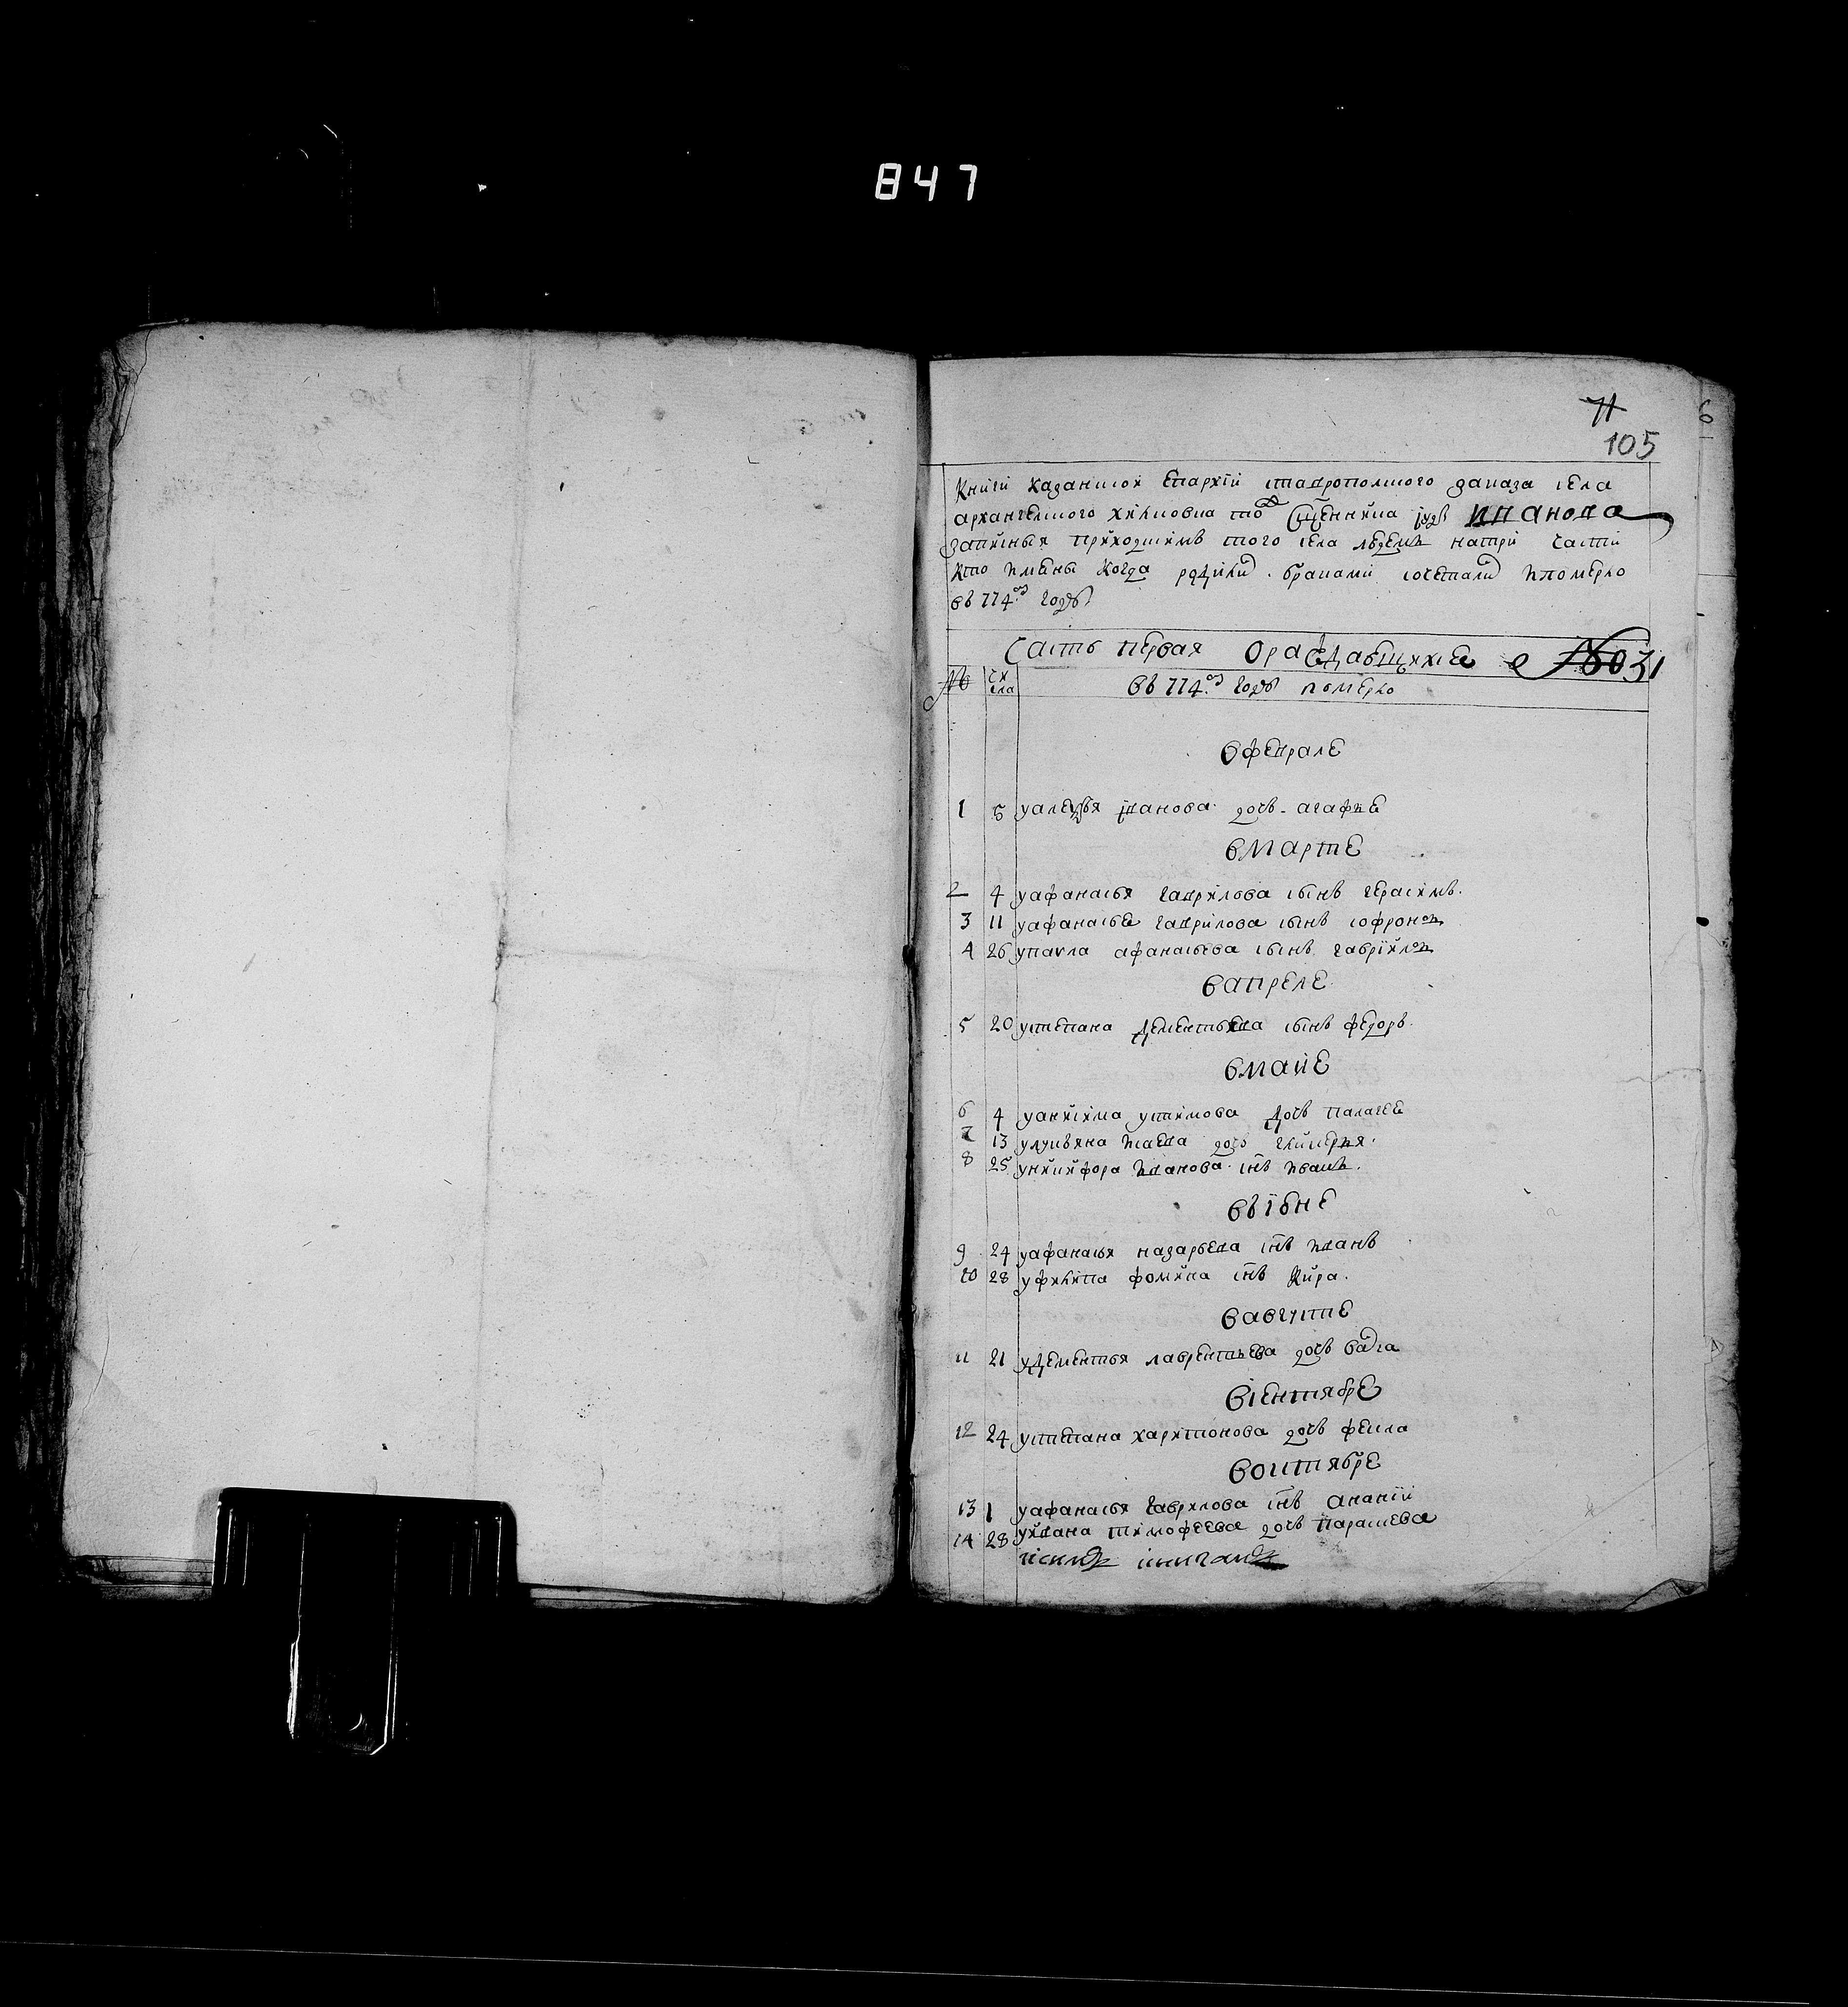 847
71
105
Книги казанской епархїи ставропольского заказа села
архангельского хилковка тоѡ сщенника
записныя приходскимъ того села людемъ на три части
кто имены когда родили браками сочетали и померло
въ 774 году
Часть первая о раждавшихсе
№ число въ 774 году померло
в феврале
1 5 у алексѣя иванова дочь агафие
в марте
2 4 у афанасья гаврилова сынъ герасимъ.
3 11 у афанасье гаврилова сынъ софронон
4 26 у павла афанасьева сынъ гаврїилон
в апреле
5 20 у степана дементьева сынъ федоръ.
в маие
6 4 у анисима устимова дочь палагее
7 13 у лукьяна исаева дочь гликерия.
8 25 у никифора иванова снъ иванъ.
въ їюне
9 24 у афанасья назарьева снъ иванъ
10 28 у филипа фомина снъ кира.
в августе
11 21 у дементья лаврентьева дочь
в сентябре
12 24 у степана харитонова дочь фекла
в октябре
13 1 у афанасья гаврилова снъ ананїи
14 28 у ивана тимофеева дочь парасева